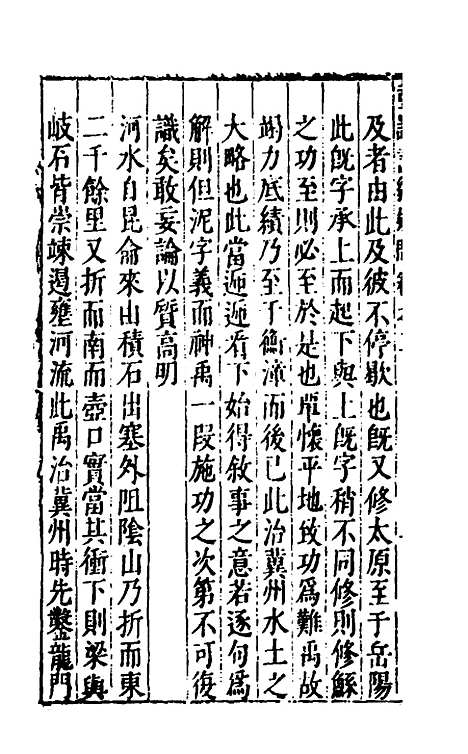 及者由此及彼不停歇也既又修太原至于岳陽
此既字承上而起下與上既字稍不同修則修鯀
之功至則必至於是也覃懷平地致功爲難禹故
竭力底績乃至于衡漳而後已此治冀州水土之
大略也此當遞遞看下始得敘事之意若逐句爲
解則但泥字義而神禹一段施功之次第不可復
識矣敢妄論以質高明
河水自昆侖來由積石出塞外阻陰山乃折而東
二千餘里又折而南而壺口實當其衝下則梁與
岐石皆崇竦遏壅河流此禹治冀州時先鑿龍門